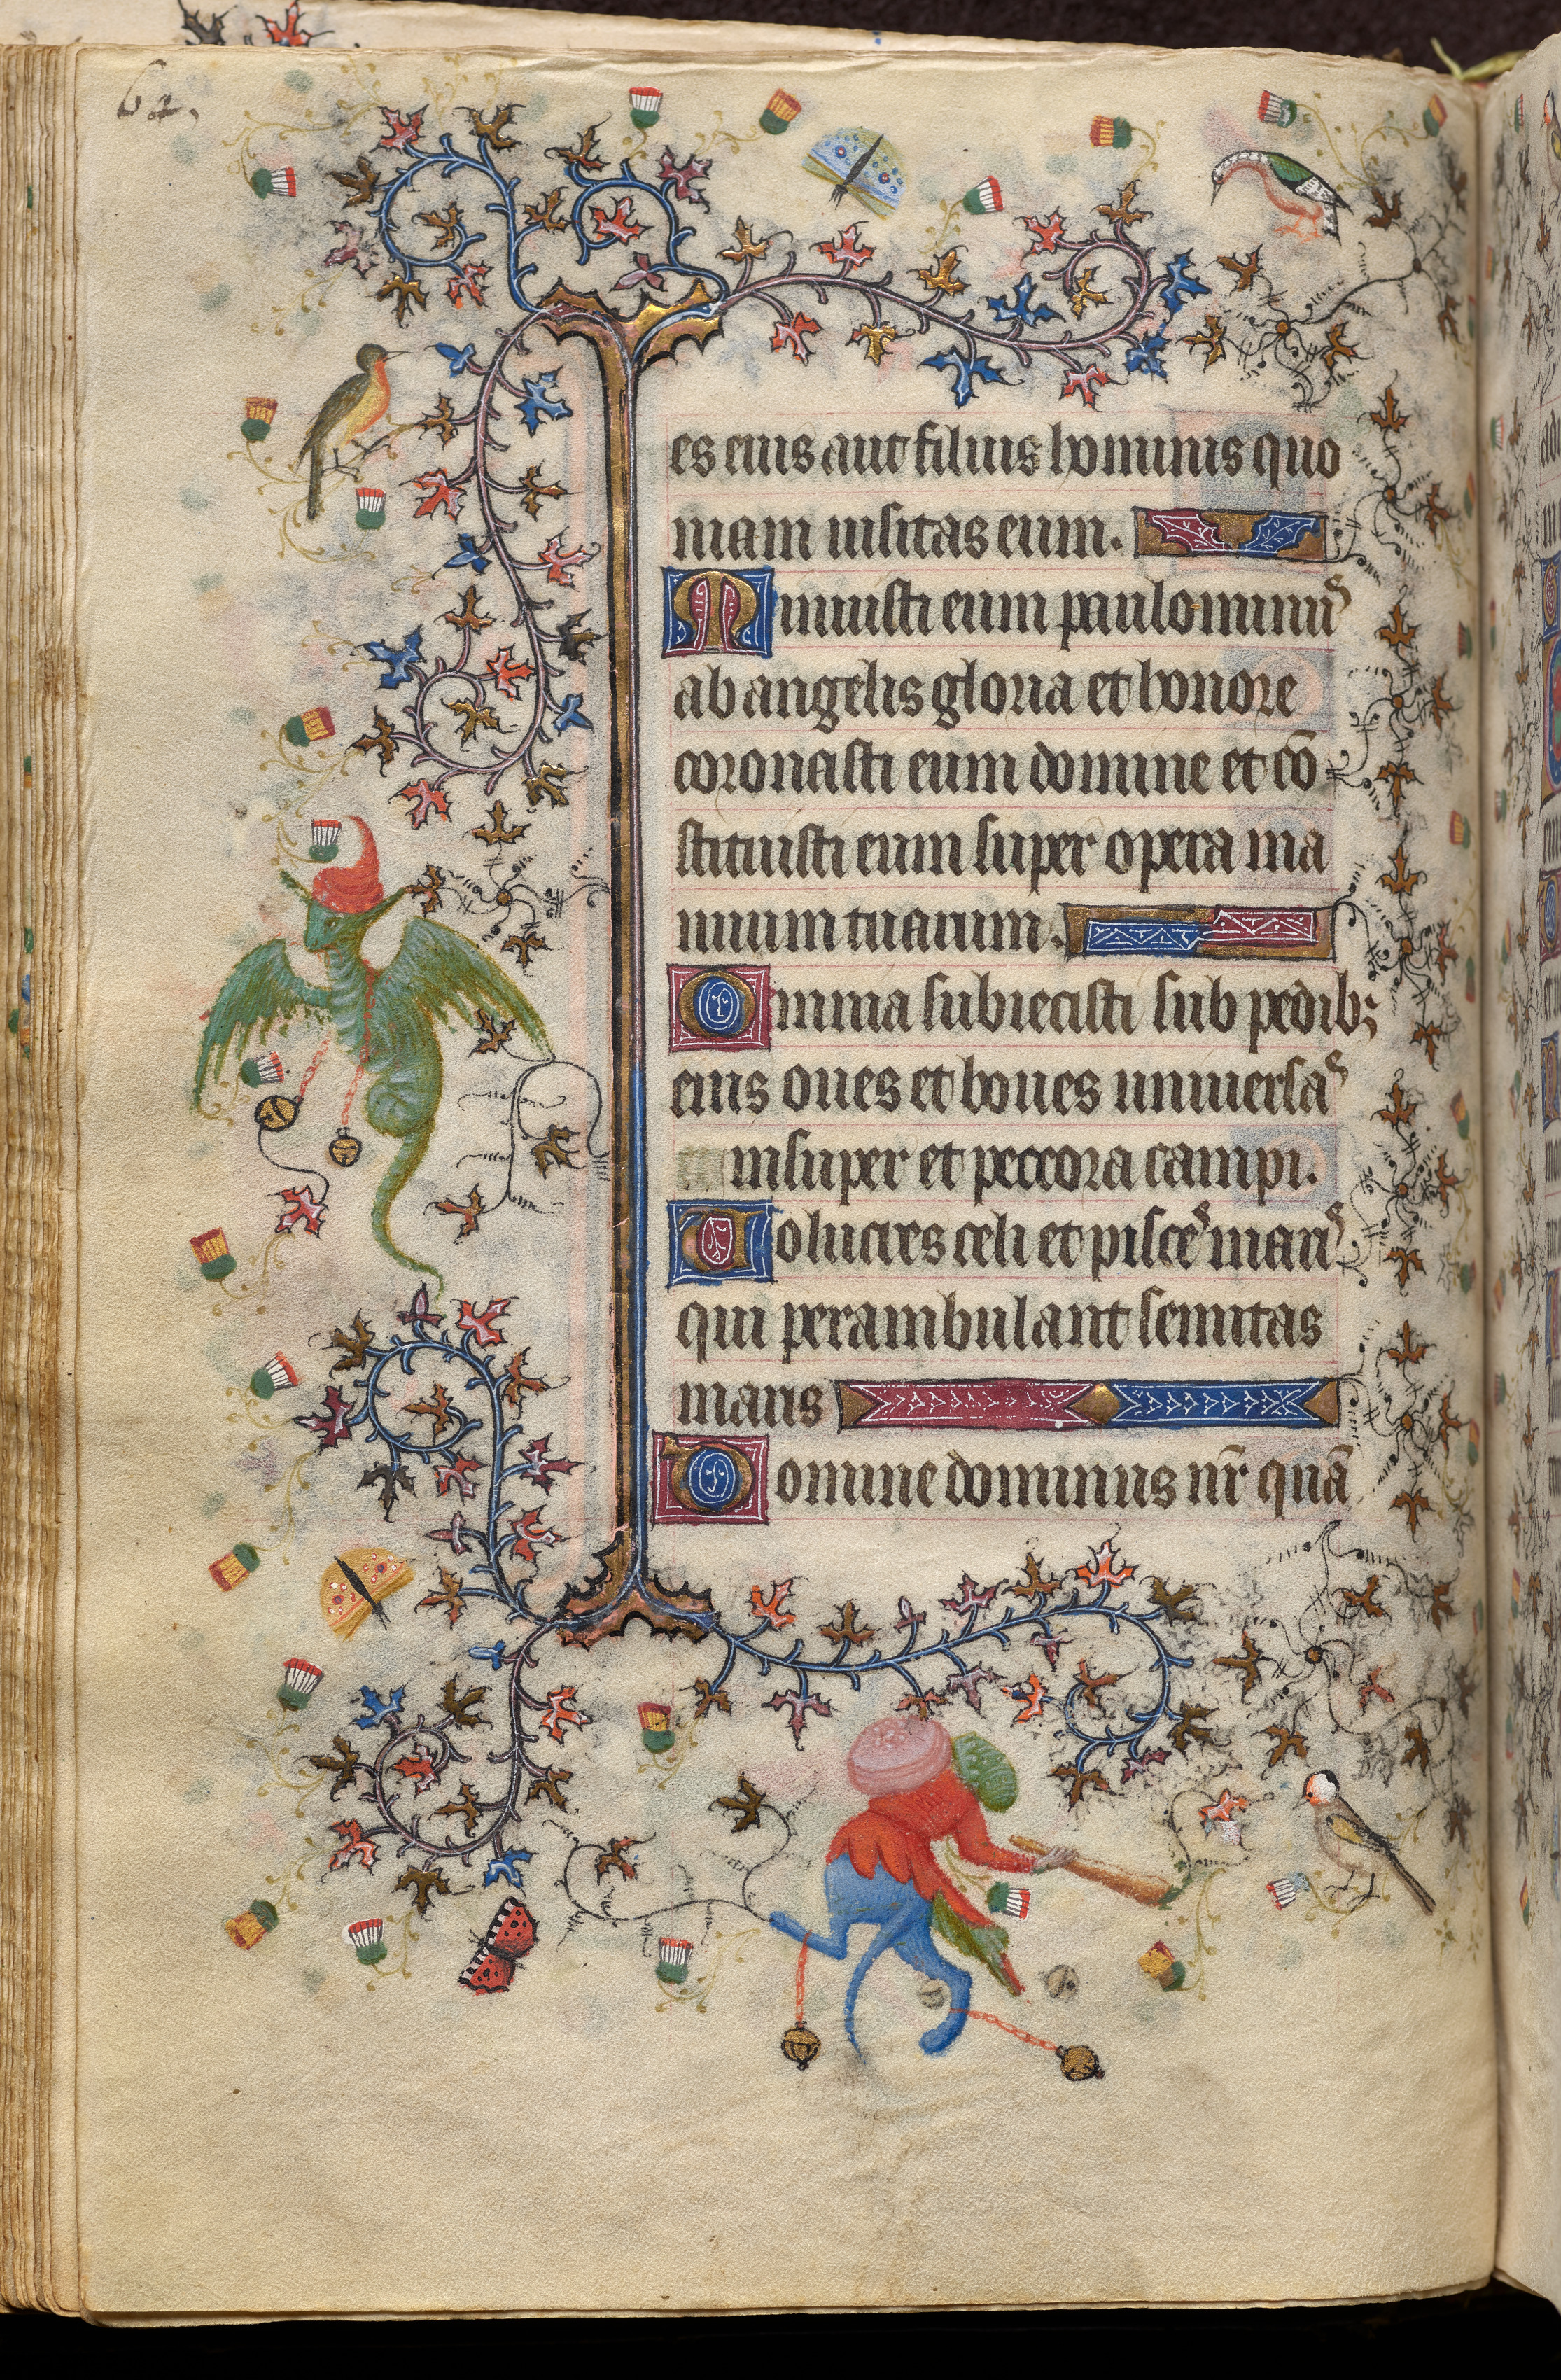 62.
es eius aut filius hominis quo
niam uisitas eum.
Minuisti eum paulominus
ab angelis gloria et honore
coronasti eum domine et cō
stituisti eum super opera ma
nuum tuarum.
Omnia subiecisti sub pedibꝫ
eius oues et boues uniuersas
insuper et peccora campi.
Uolucres celi et pisces maris
qui perambulant semitas
maris
Domine dominus nr̄ quā